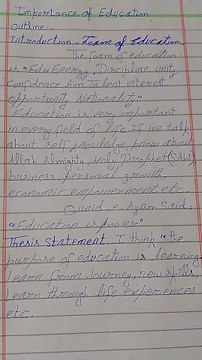 Importance of Education
Outline
Introduction - Foam of Education.
The foam of education
is "Edu Energy, Discipline unity
Confidence Aim Talent interest
opportunity Nationality"
Education is very important
in every field of life. If we talk
about self knowledge, know about
Allah Almighty, Holy Prophet (SAW),
business, personal growth,
economic empowerment etc.
Quaid e Azam said,
"Education is power"
Thesis Statement. I think "the
purpose of education is learning
learn from Journey, new skills,
learn through life experiences
etc.